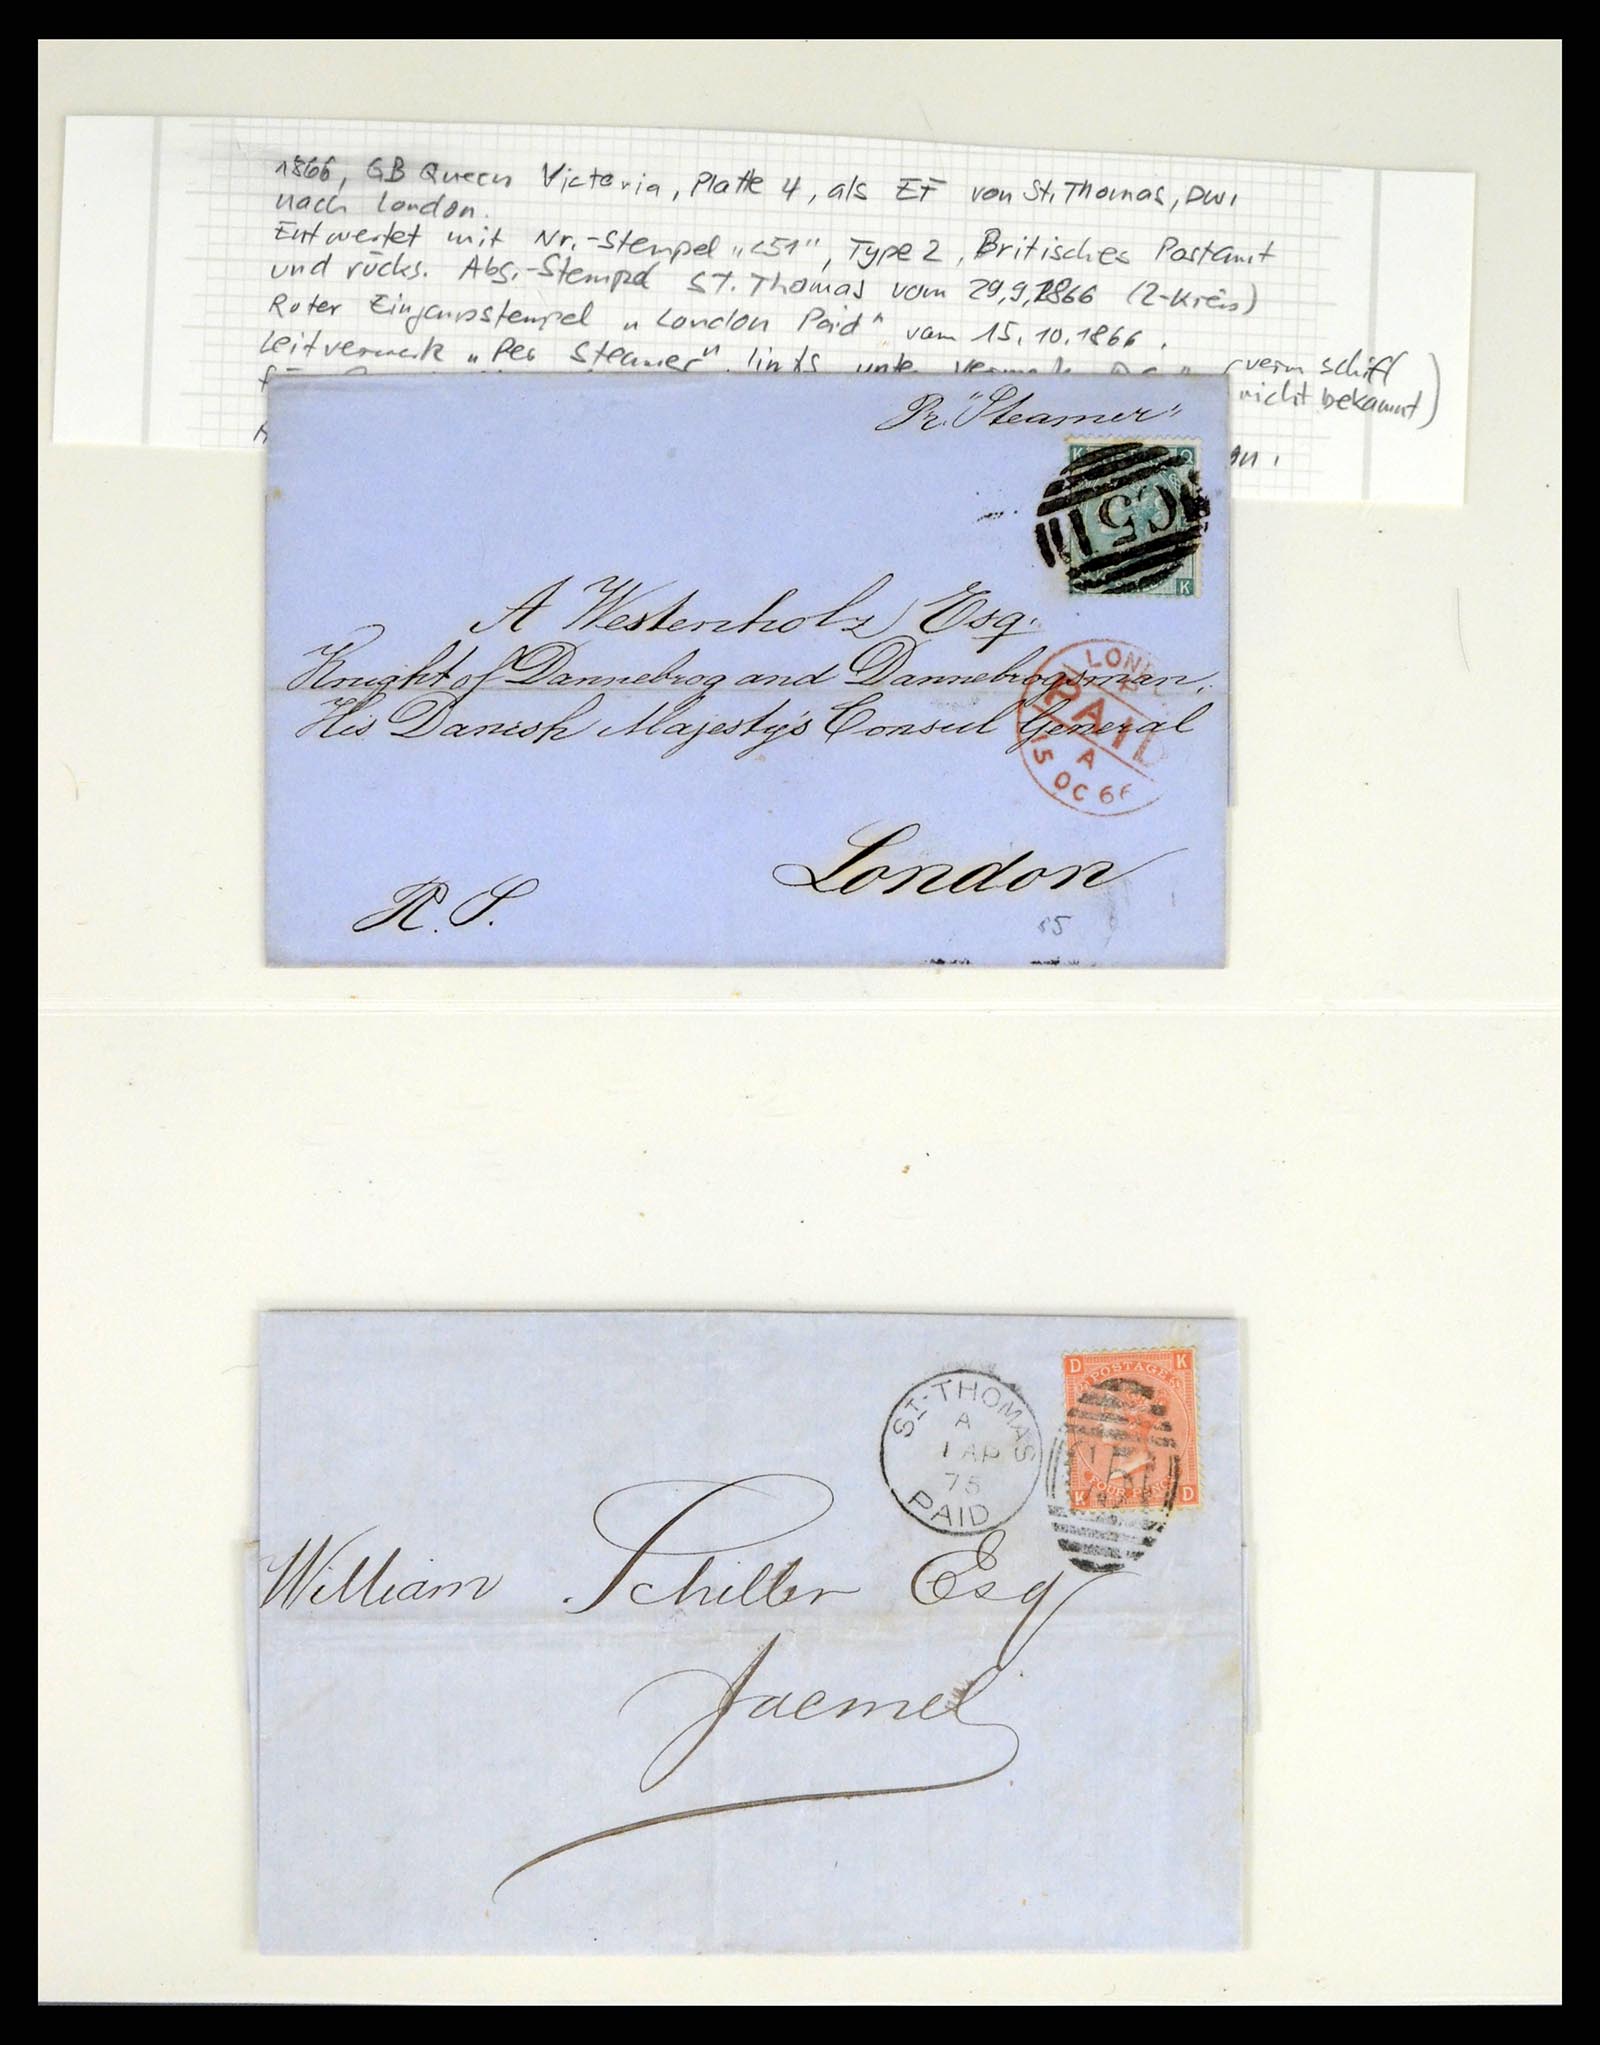 1866, GB Queen Victoria, Platte 4, als EF von St. Thomas, DWI
nach London.
Entwertet mit Nr.-Stempel „C51", Type 2, Britisches Postamt
und rücks. Abg.-Stempel ST. Thomas vom 29.9.1866 (2-Kreis)
Roter Eingangsstempel „London Paid" vom 15.10.1866.
Leitvermerk „Per Steamer", links unte Vermerk (verm Schiff
nicht bekannt)
Pr. "Steamer"
K Q
C51
K
A Westenholz Esq.
Knight of Dannebrog and Dannebrogsman,
His Danish Majesty's Consul General
London
R. S.
LON
PAID
A
15 OC 66
D K
POSTAGE
FOUR PENC
K D
ST. THOMAS
A
1 AP
75
PAID
William Schiller Esq
Jacmel